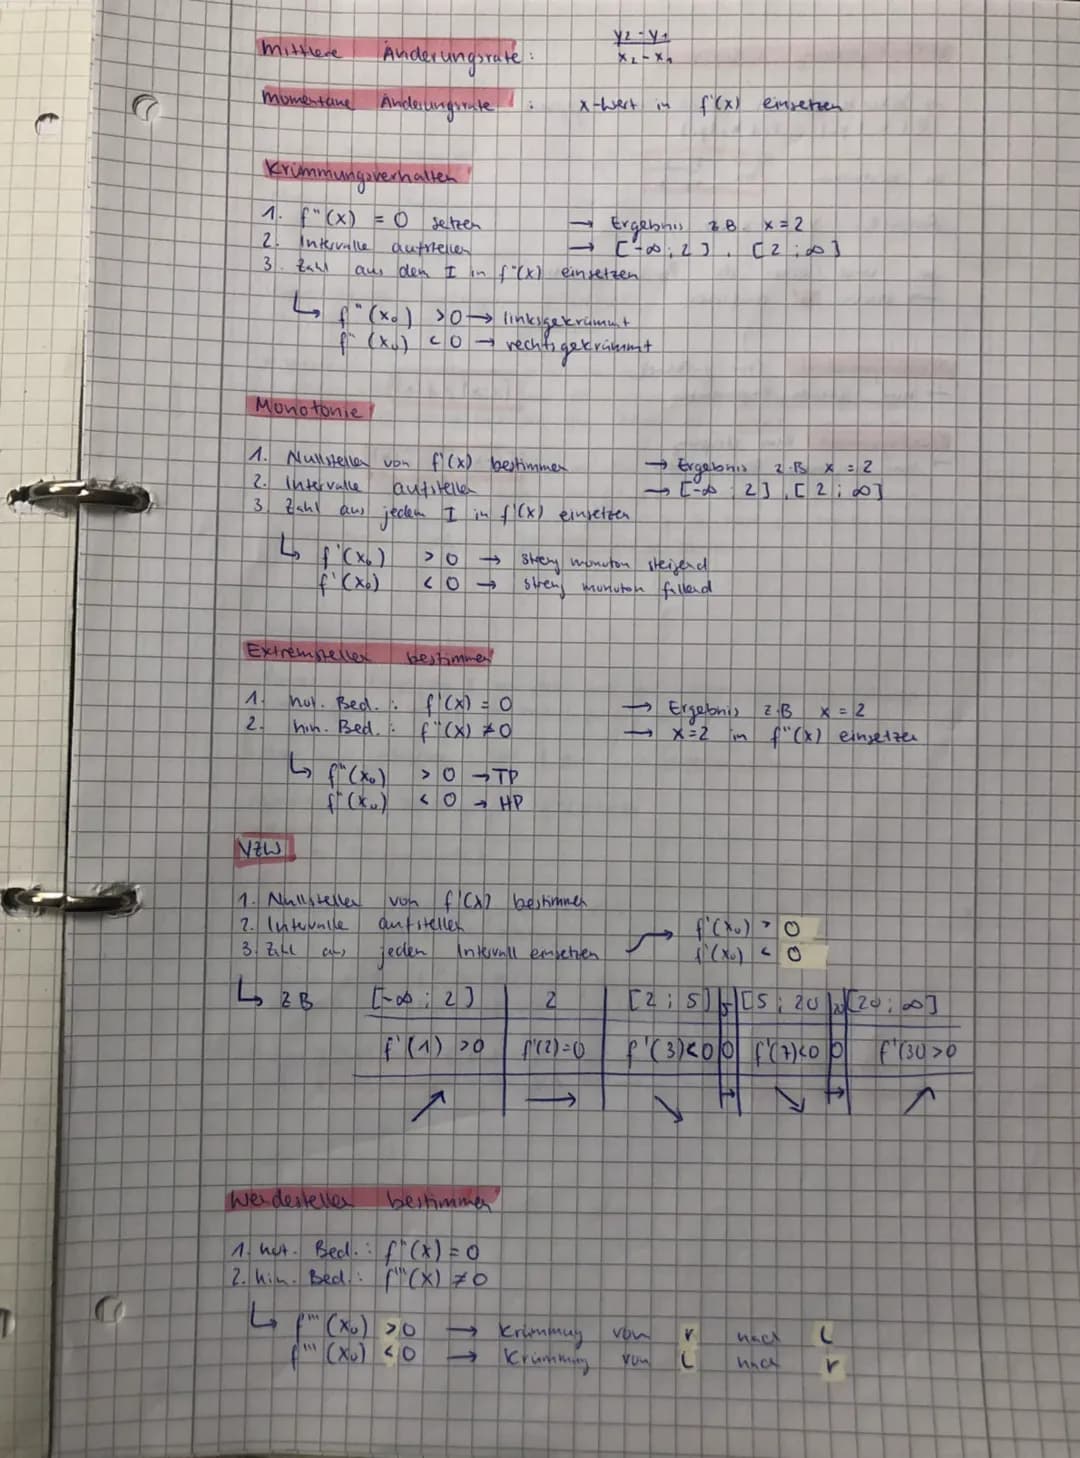 Mittlere Änderungsrate: y₂-y₁ / x₂-x₁
Momentane Änderungsrate: x-Wert in f'(x) einsetzen
Krümmungsverhalten
1. f"(x) = 0 setzen → Ergebnis z.B. x=2
2. Intervalle aufstellen → [-∞;2], [2;∞]
3. Zahl aus dem I in f"(x) einsetzen
↳ f"(x₀) >0 → linksgekrümmt
f"(x₀) <0 → rechtsgekrümmt
Monotonie
1. Nullstellen von f'(x) bestimmen → Ergebnis z.B x = 2
2. Intervalle aufstellen → [-∞ ; 2], [2 ; ∞]
3. Zahl aus jedem I in f'(x) einsetzen
↳ f'(x₀) > 0 → streng monoton steigend
f'(x₀) < 0 → streng monoton fallend
Extremstellen bestimmen
1. not. Bed. : f'(x) = 0 → Ergebnis z.B x = 2
2. hin. Bed. : f"(x) ≠ 0 → x=2 in f"(x) einsetzen
↳ f"(x₀) > 0 → TP
f"(x₀) < 0 → HP
VZW
1. Nullstellen von f'(x) bestimmen
2. Intervalle aufstellen f'(x₀) > 0
3. Zahl aus jeden Intervall einsetzen → f'(x₀) < 0
↳ z B [-∞ ; 2] | 2 | [2 ; 5] | 5 | [5 ; 20 | 20 | [20 ; ∞]
f'(1) >0 | f'(2)=0 | f'(3)<0 | 0 | f'(7)<0 | 0 | f'(30)>0
↗ | → | ↘ | → | ↘ | → | ↗
Wendestellen bestimmen
1. not. Bed. : f"(x) = 0
2. hin. Bed. : f'''(x) ≠ 0
↳ f'''(x₀) >0 → Krümmung von r nach l
f'''(x₀) <0 → Krümmung von l nach r